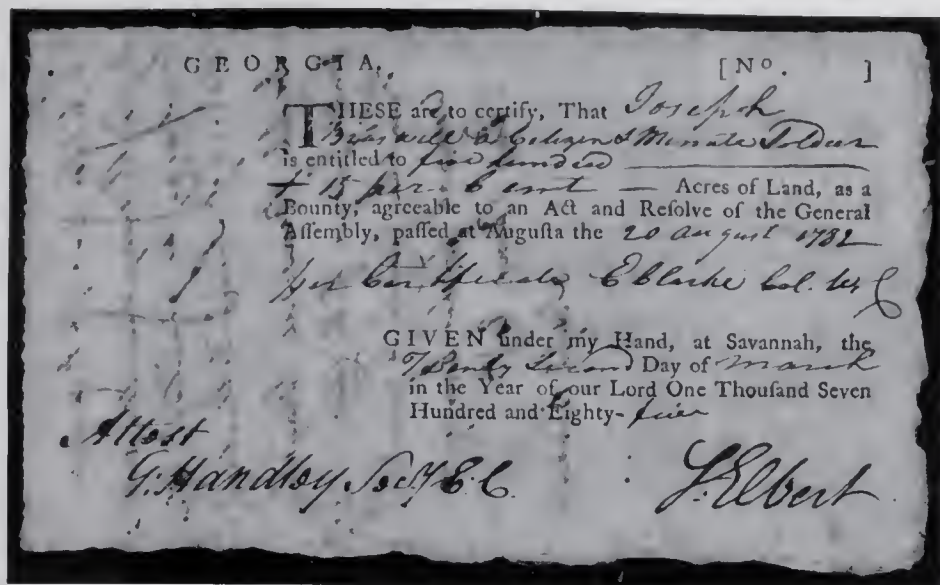 GEORGIA. [No. ]
THESE are to certify, That Joseph
a Citizen & Minute Soldier
is entitled to five hundred
+ 15 per Cent — Acres of Land, as a
Bounty, agreeable to an Act and Reſolve of the General
Aſſembly, paſſed at Auguſta the 20 august 1782
per Certificate E Clarke Col.
GIVEN under my Hand, at Savannah, the
Twenty Second Day of March
in the Year of our Lord One Thouſand Seven
Hundred and Eighty-five
Attest
G. Handley Secy E. C.
S. Elbert